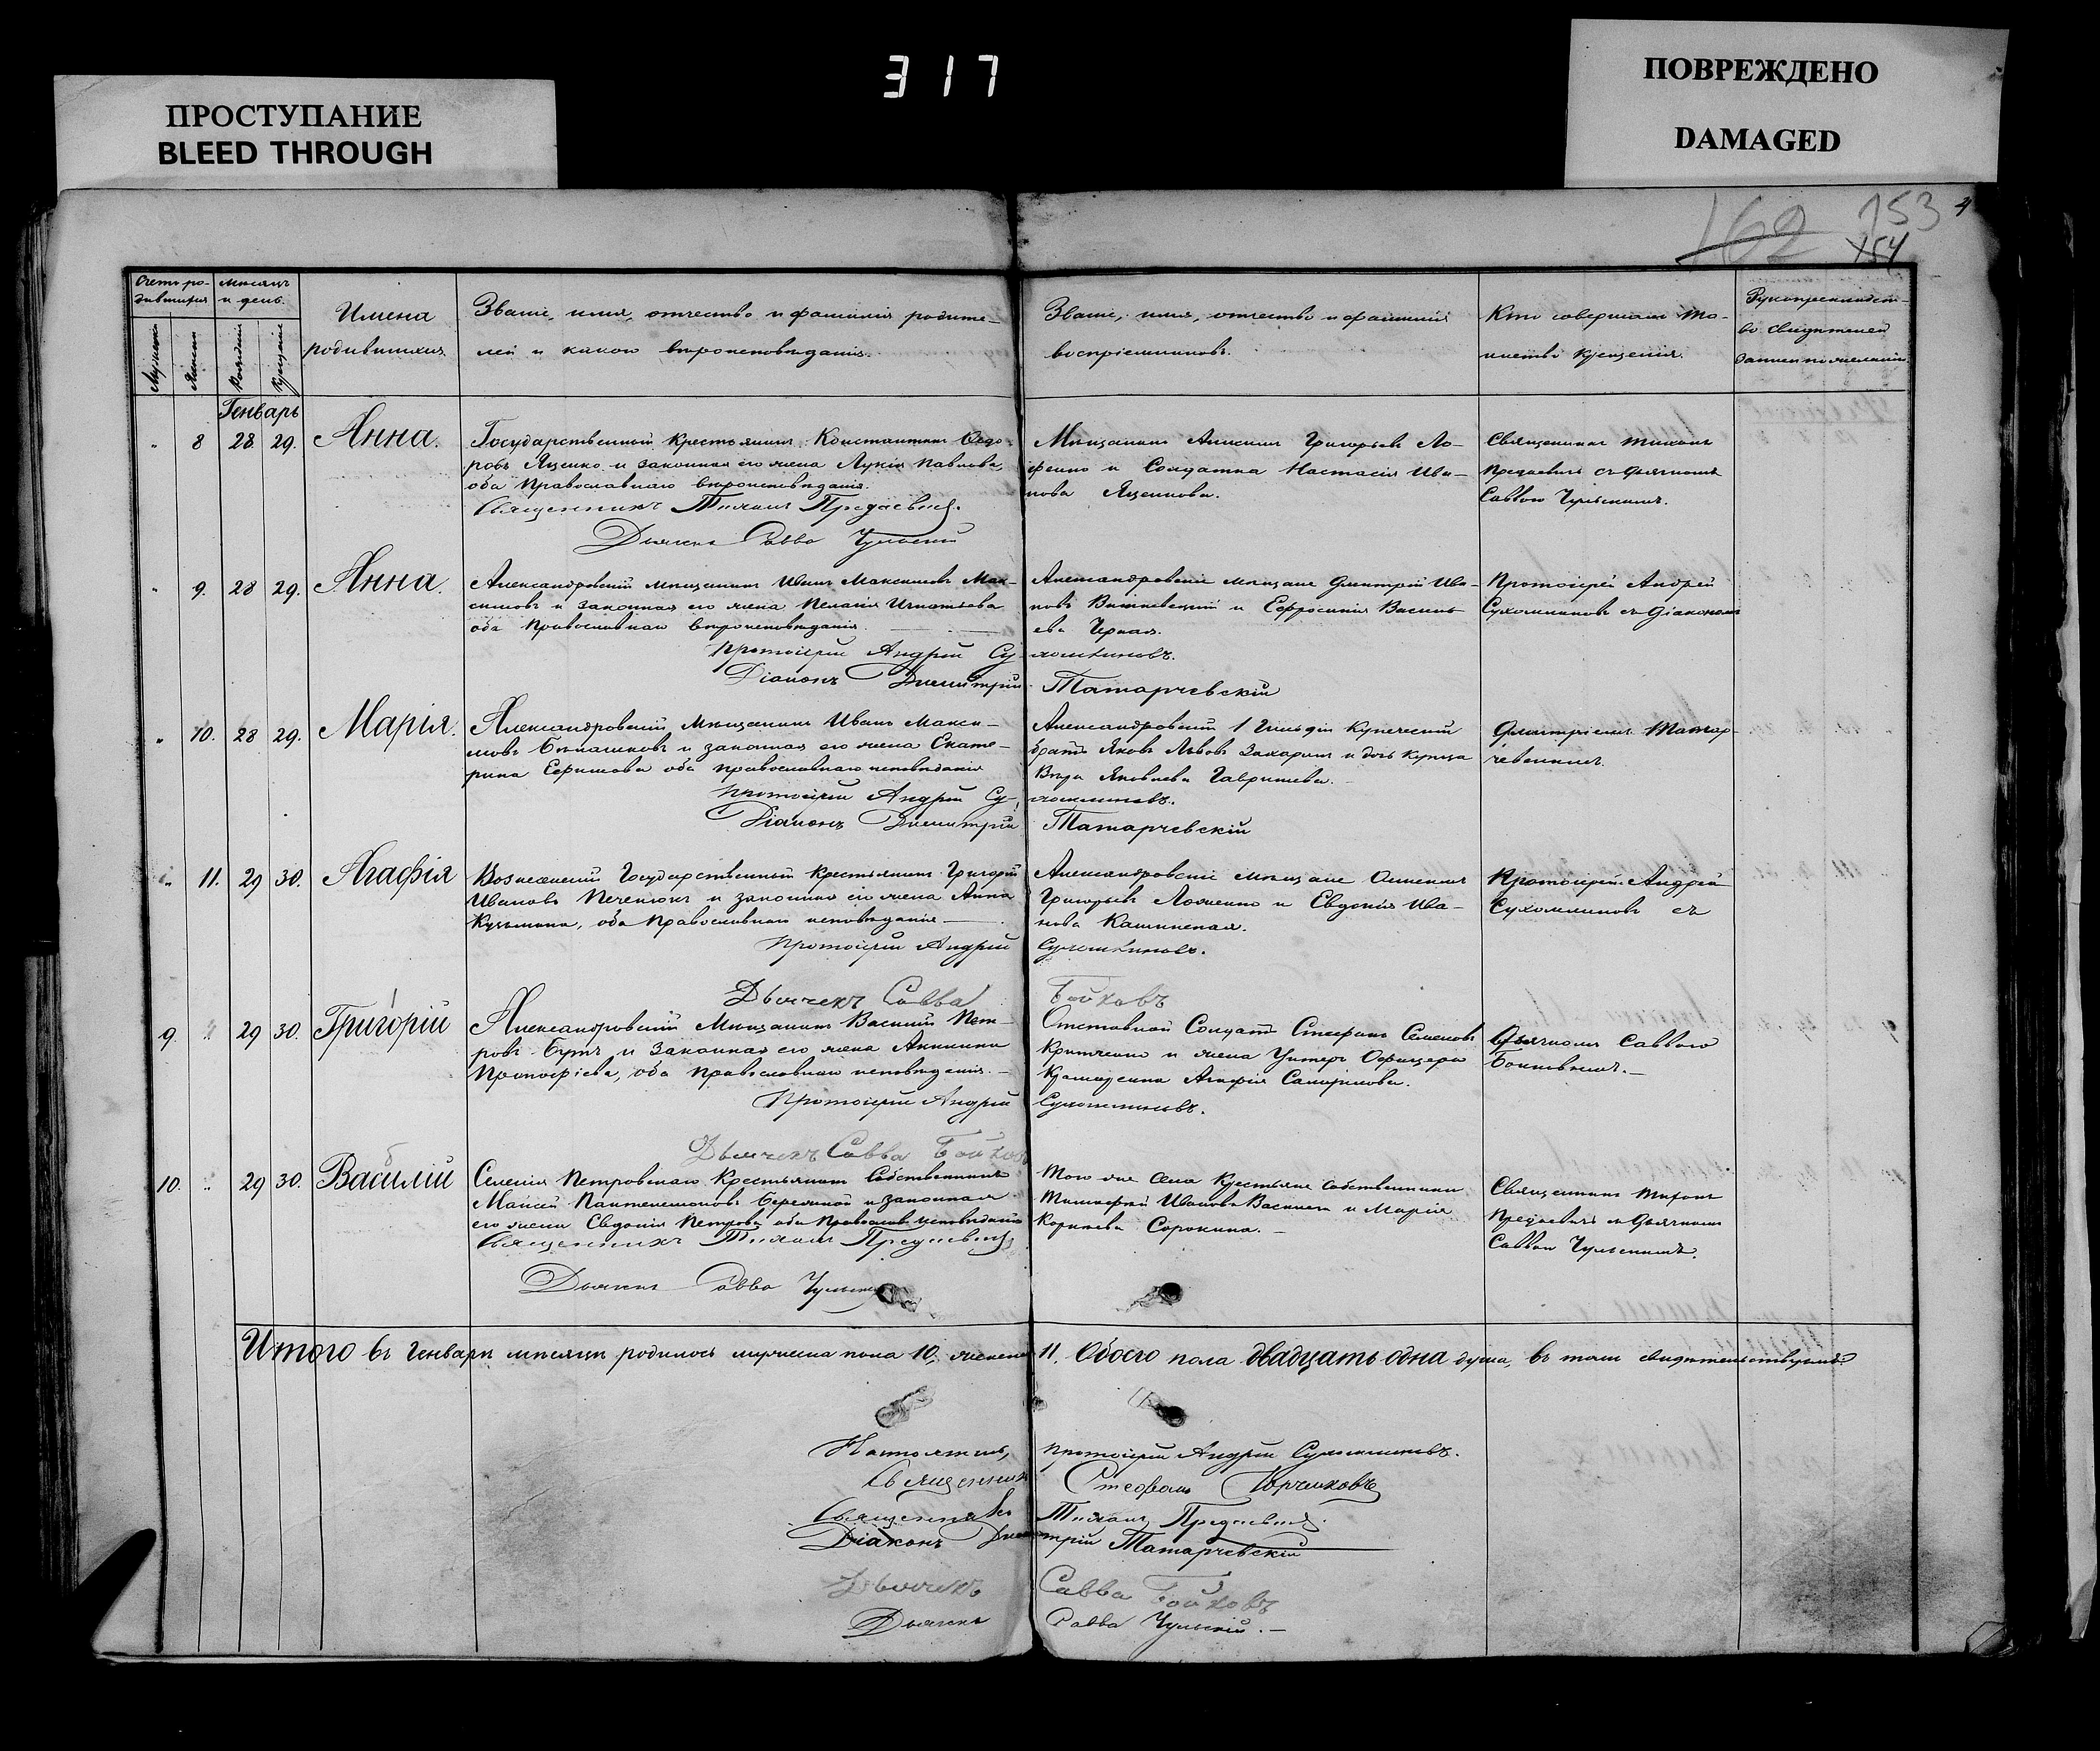 317
ПРОСТУПАНИЕ
BLEED THROUGH
ПОВРЕЖДЕНО
DAMAGED
162 153 4
154
Счетъ ро-
дившихся
Мѣсяцъ
и день.
Имена
родившихся
Званіе, имя, отчество и фамилія родите-
лей и какого вѣроисповѣданія.
Званіе, имя, отчество и фамилія
воспріемниковъ.
Кто совершалъ та-
инство крещенія.
Рукоприкладст-
во свидѣтелей
записи по желанію
Генварь
8 28 29. Анна.
Государственный Крестьянинъ Константинъ Ѳедо-
ровъ Яценко и законная его жена Лукія Павлова,
оба Православнаго вѣроисповѣданія.
Священникъ Тихонъ
Дьячекъ Савва Чульскій
Мѣщанинъ Алексѣй Григорьевъ
и Солдатка Настасія Ива-
нова Яценкова.
Священникъ Тихонъ
съ дьячкомъ
Саввою Чульскимъ.
9. 28 29. Анна.
Александровскій мѣщанинъ Иванъ Максимовъ Мак-
симовъ и законная его жена Пелагія Игнатьева
оба Православнаго вѣроисповѣданія.
Протоіерей Андрей Су-
хомлиновъ.
Діаконъ Димитрій Татарчевскій
Александровскіе мѣщане Димитрій Ива-
новъ Вишневецкій и Евфросинія Василь-
ева Черная.
Протоіерей Андрей
Сухомлиновъ съ Діакономъ
10. 28 29. Марія.
Александровскій Мѣщанинъ Иванъ Макси-
мовъ и законная его жена Екате-
рина Ефимова оба православнаго исповѣданія
Протоіерей Андрей Су-
хомлиновъ.
Діаконъ Димитрій Татарчевскій
Александровскій 1 Гильдіи Купеческій
братъ Яковъ Львовъ Захаринъ и дочь Купца
Вѣра Яковлева Гавришева.
Димитріемъ Татар-
чевскимъ.
11. 29 30. Агафія
Вознесенскій Государственный Крестьянинъ Григорій
Ивановъ Печенюкъ и законная его жена Анна
Кузьмина, оба Православнаго исповѣданія
Протоіерей Андрей
Сухомлиновъ.
Дьячекъ Савва Бойковъ
Александровскіе мѣщане Алексѣй
Григорьевъ и Евдокія Ива-
нова
Протоіерей Андрей
Сухомлиновъ съ
9. 29 30. Григорій
Александровскій Мѣщанинъ Василій Пет-
ровъ Бутъ и Законная его жена Акилина
Прокофіева, оба Православнаго исповѣданія.
Протоіерей Андрей
Сухомлиновъ.
Дьячекъ Савва Бойковъ
Отставной Солдатъ Стефанъ Семеновъ
и жена Унтеръ Офицера
Агафія
Дьячкомъ Саввою
Бойковымъ.
10. 29 30. Василій
Селенія Петровскаго Крестьянинъ Собственникъ
Моисей Пантелеймоновъ и законная
его жена Евдокія Петрова, оба Православн. исповѣданія
Священникъ Тихонъ
Дьячекъ Савва
Того же Села Крестьяне собственники
Тимофей Ивановъ и Марія
Корнѣева Сорокина.
Священникъ Тихонъ
съ дьячкомъ
Саввою Чульскимъ.
Итого въ Генварѣ мѣсяцѣ родилось мужеска пола 10, женска 11. Обоего пола двадцать одна душа, въ томъ свидѣтельствуемъ:
Настоятель, протоіерей Андрей Сухомлиновъ.
Священникъ Стефанъ
Священникъ Тихонъ
Діаконъ Димитрій Татарчевскій
Дьячекъ Савва Бойковъ
Дьячекъ Савва Чульскій.